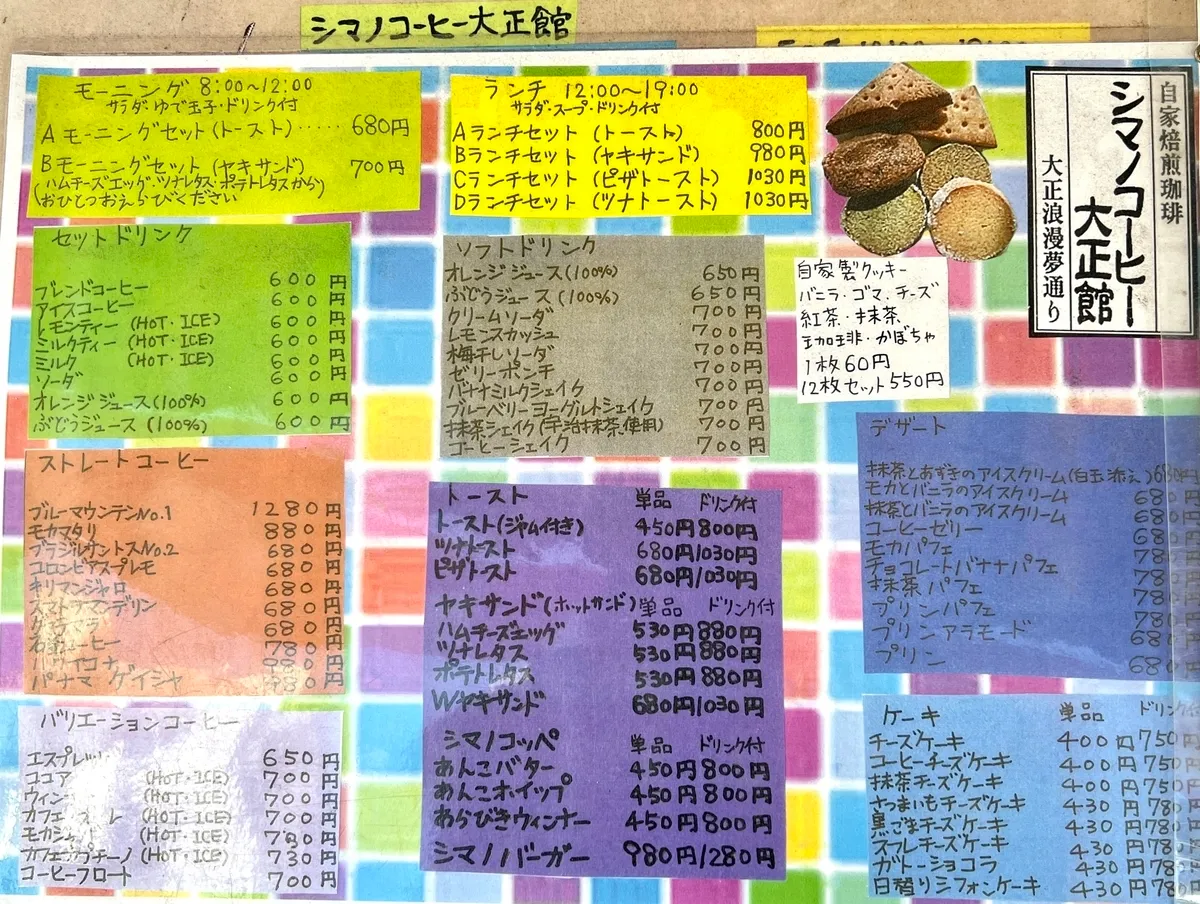 シマノコーヒー大正館
モーニング 8:00〜12:00
サラダ・ゆで玉子・ドリンク付
Aモーニングセット(トースト)‥‥‥ 680円
Bモーニングセット(ヤキサンド) 700円
(ハムチーズエッグ・ツナレタス・ポテトレタスから)
おひとつおえらびください
ランチ 12:00〜19:00
サラダ・スープ・ドリンク付
Aランチセット(トースト) 800円
Bランチセット(ヤキサンド) 980円
Cランチセット(ピザトースト) 1030円
Dランチセット(ツナトースト) 1030円
自家焙煎珈琲
シマノコーヒー
大正館
大正浪漫夢通り
セットドリンク
ブレンドコーヒー 600円
アイスコーヒー 600円
レモンティー (HOT・ICE) 600円
ミルクティー (HOT・ICE) 600円
ミルク (HOT・ICE) 600円
ソーダ 600円
オレンジジュース(100%) 600円
ぶどうジュース(100%) 600円
ソフトドリンク
オレンジジュース(100%) 650円
ぶどうジュース(100%) 650円
クリームソーダ 700円
レモンスカッシュ 700円
梅干しソーダ 700円
ゼリーポンチ 700円
バナナミルクシェイク 700円
ブルーベリーヨーグルトシェイク 700円
抹茶シェイク(宇治抹茶使用) 700円
コーヒーシェイク 700円
自家製クッキー
バニラ・ゴマ・チーズ
紅茶・抹茶
珈琲・かぼちゃ
1枚60円
12枚セット550円
ストレートコーヒー
ブルーマウンテンNo.1 1280円
モカマタリ 880円
ブラジルサントスNo.2 680円
コロンビアスプレモ 680円
キリマンジャロ 680円
スマトラマンデリン 680円
680円
コーヒー 780円
ハワイコナ 980円
パナマ ゲイシャ 980円
バリエーションコーヒー
エスプレッソ 650円
ココア (HOT・ICE) 700円
ウィン (HOT・ICE) 700円
カフェ レ (HOT・ICE) 700円
モカ (HOT・ICE) 円
カフェカプチーノ (HOT・ICE) 730円
コーヒーフロート 700円
トースト 単品 ドリンク付
トースト(ジャム付き) 450円800円
ツナトースト 680円/1030円
ピザトースト 680円/1030円
ヤキサンド(ホットサンド) 単品 ドリンク付
ハムチーズエッグ 530円880円
ツナレタス 530円880円
ポテトレタス 530円880円
Wヤキサンド 680円/1030円
シマノコッペ 単品 ドリンク付
あんこバター 450円800円
あんこホイップ 450円800円
あらびきウィンナー 450円800円
シマノバーガー 980円/1280円
デザート
抹茶とあずきのアイスクリーム(白玉添え)680円
モカとバニラのアイスクリーム 680
抹茶とバニラのアイスクリーム 680
コーヒーゼリー 680
モカパフェ 780
チョコレートバナナパフェ 780
抹茶パフェ 780
プリンパフェ 780
プリンアラモード 680
プリン 680
ケーキ 単品 ドリンク
チーズケーキ 400円750
コーヒーチーズケーキ 400円750
抹茶チーズケーキ 400円750
さつまいもチーズケーキ 430円780
黒ごまチーズケーキ 430円780
スフレチーズケーキ 430円780
ガトーショコラ 430円780
日替りシフォンケーキ 430円780